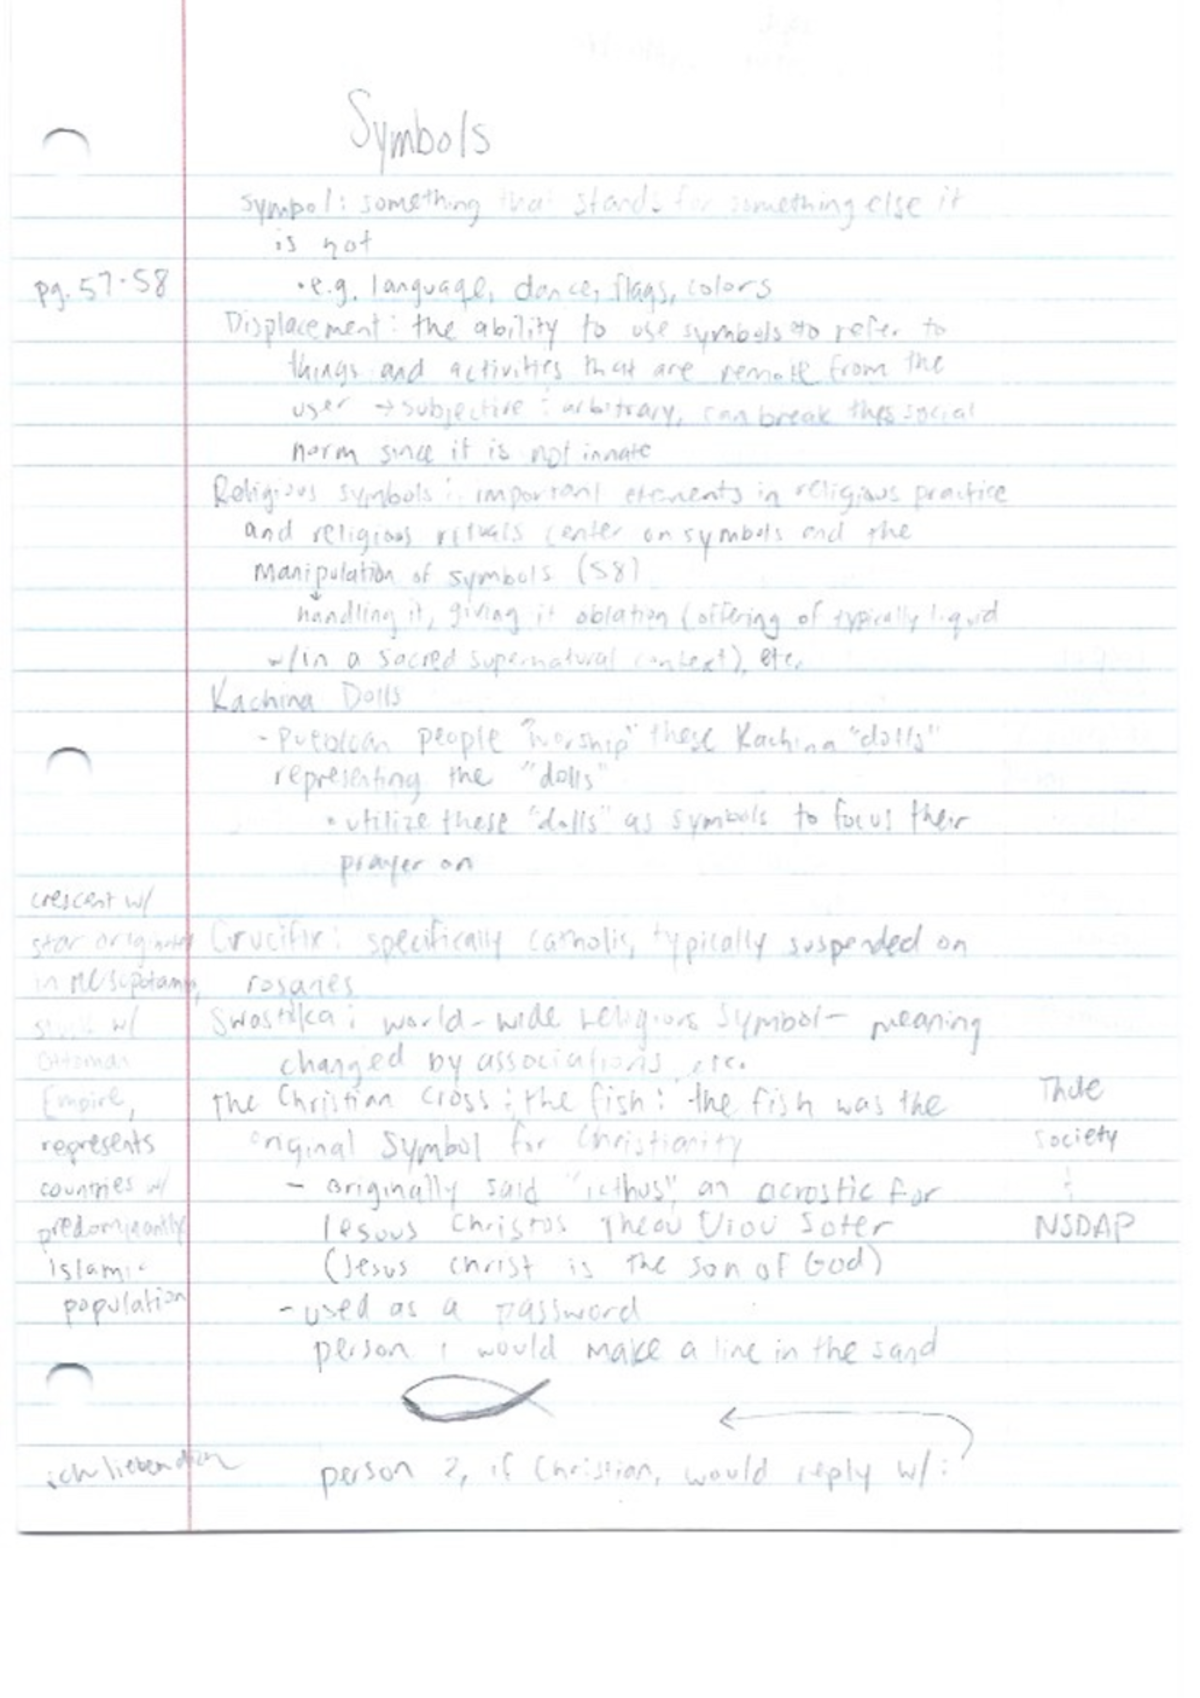 Symbols
symbol: something that stands for something else it
is not
pg. 57-58
• e.g. language, dance, flags, colors
Displacement: the ability to use symbols to refer to
things and activities that are remote from the
user → subjective : arbitrary, can break the social
norm since it is not innate
Religious symbols: important elements in religious practice
and religious rituals center on symbols and the
manipulation of symbols (58)
handling it, giving it oblation (offering of typically liquid
w/in a sacred supernatural context), etc.
Kachina Dolls
- Puebloan people "worship" these Kachina "dolls"
representing the "dolls"
• utilize these "dolls" as symbols to focus their
prayer on
crescent w/
star originated
in Mesopotamia,
stuck w/
Ottoman
Empire,
represents
countries w/
predominantly
islamic
population
Crucifix: specifically catholic, typically suspended on
rosaries
Swastika: world-wide religious symbol- meaning
changed by associations, etc.
The Christian Cross ; the fish: the fish was the
original symbol for Christianity
- originally said "icthus", an acrostic for
Iesous Christos Theou Uiou Soter
(Jesus christ is the son of God)
- used as a password
person 1 would make a line in the sand
Thule
society
:
NSDAP
ich liebe dich
person 2, if Christian, would reply w/: